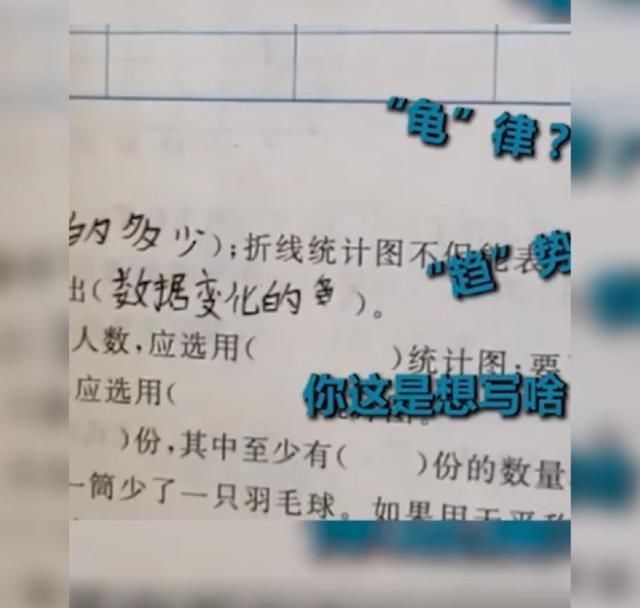 "龟"律？
的多少)；折线统计图不但能表
"趋"势
出(数据变化的 )。
人数，应选用( )统计图；要
应选用(
你这是想写啥
)份，其中至少有( )份的数量
一筒少了一只羽毛球。如果用天平称